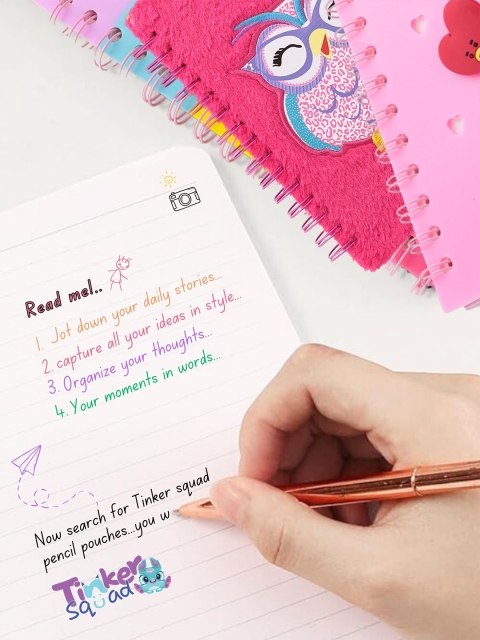 Read me!..
1. Jot down your daily stories...
2. capture all your ideas in style...
3. Organize your thoughts...
4. Your moments in words...
Now search for Tinker squad
pencil pouches...you w
Tinker
squad